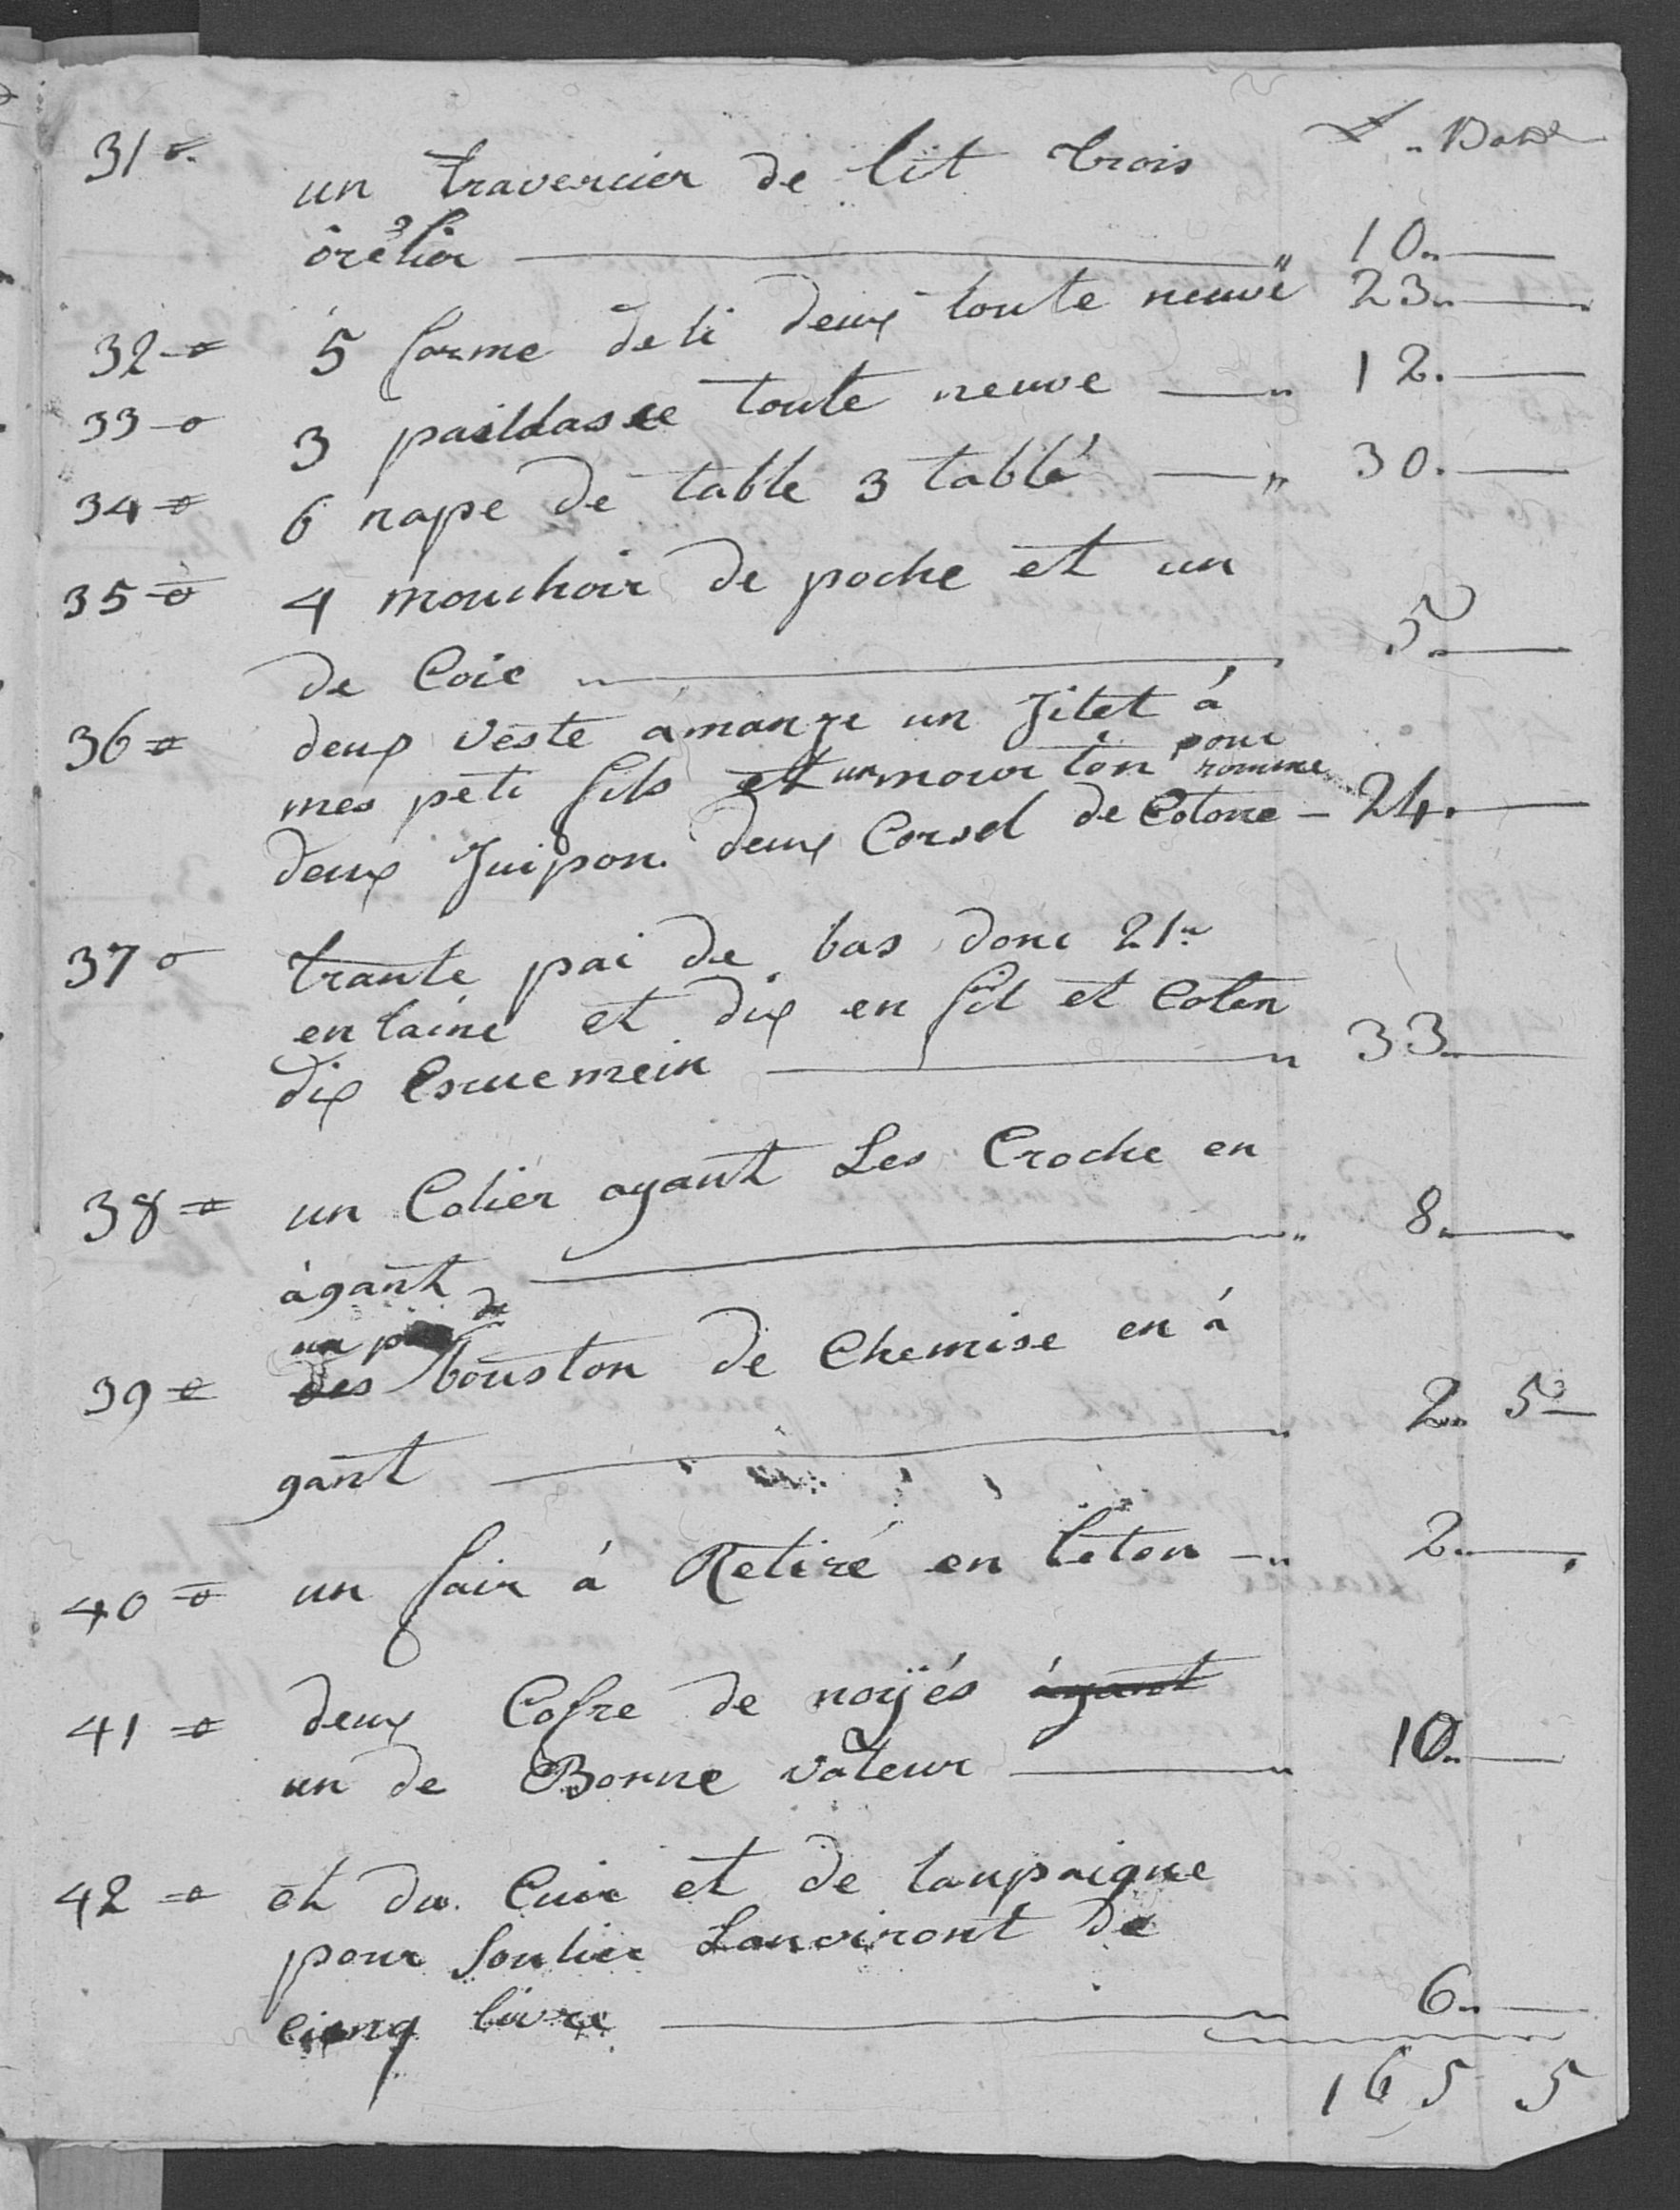 " Batz
31 un travercier de lit trois
3
orélier " 10"
32 5 forme de li deux toute neuve 23"
33 3 paildasse toute neuve " 12.
34 6 nape de table 3 table " 30.
35 4 mouchoir de poche et un
de Coie " 5"
36 deux veste à manze un Jilet à
mes peti fils et un mouton pour homme
deux Juipon deux Corsel de Cotone - 24.
37 trante pai de bas donc 21"
en laine et dix en fil et Coton
dix Escuemein " 33"
38 un Colier ayant Les Croche en
àgant " 8"
un de
39 des bouston de Chemise en à
gant 2" 5
40 un fair à Retiré en leton " 2"
41 deux Cofre de noÿés àgant
un de Bonne valeur " 10"
42 et du Cuir et de lanpaigne
pour Soulier Lanviront de
cienq livre 6"
165 5